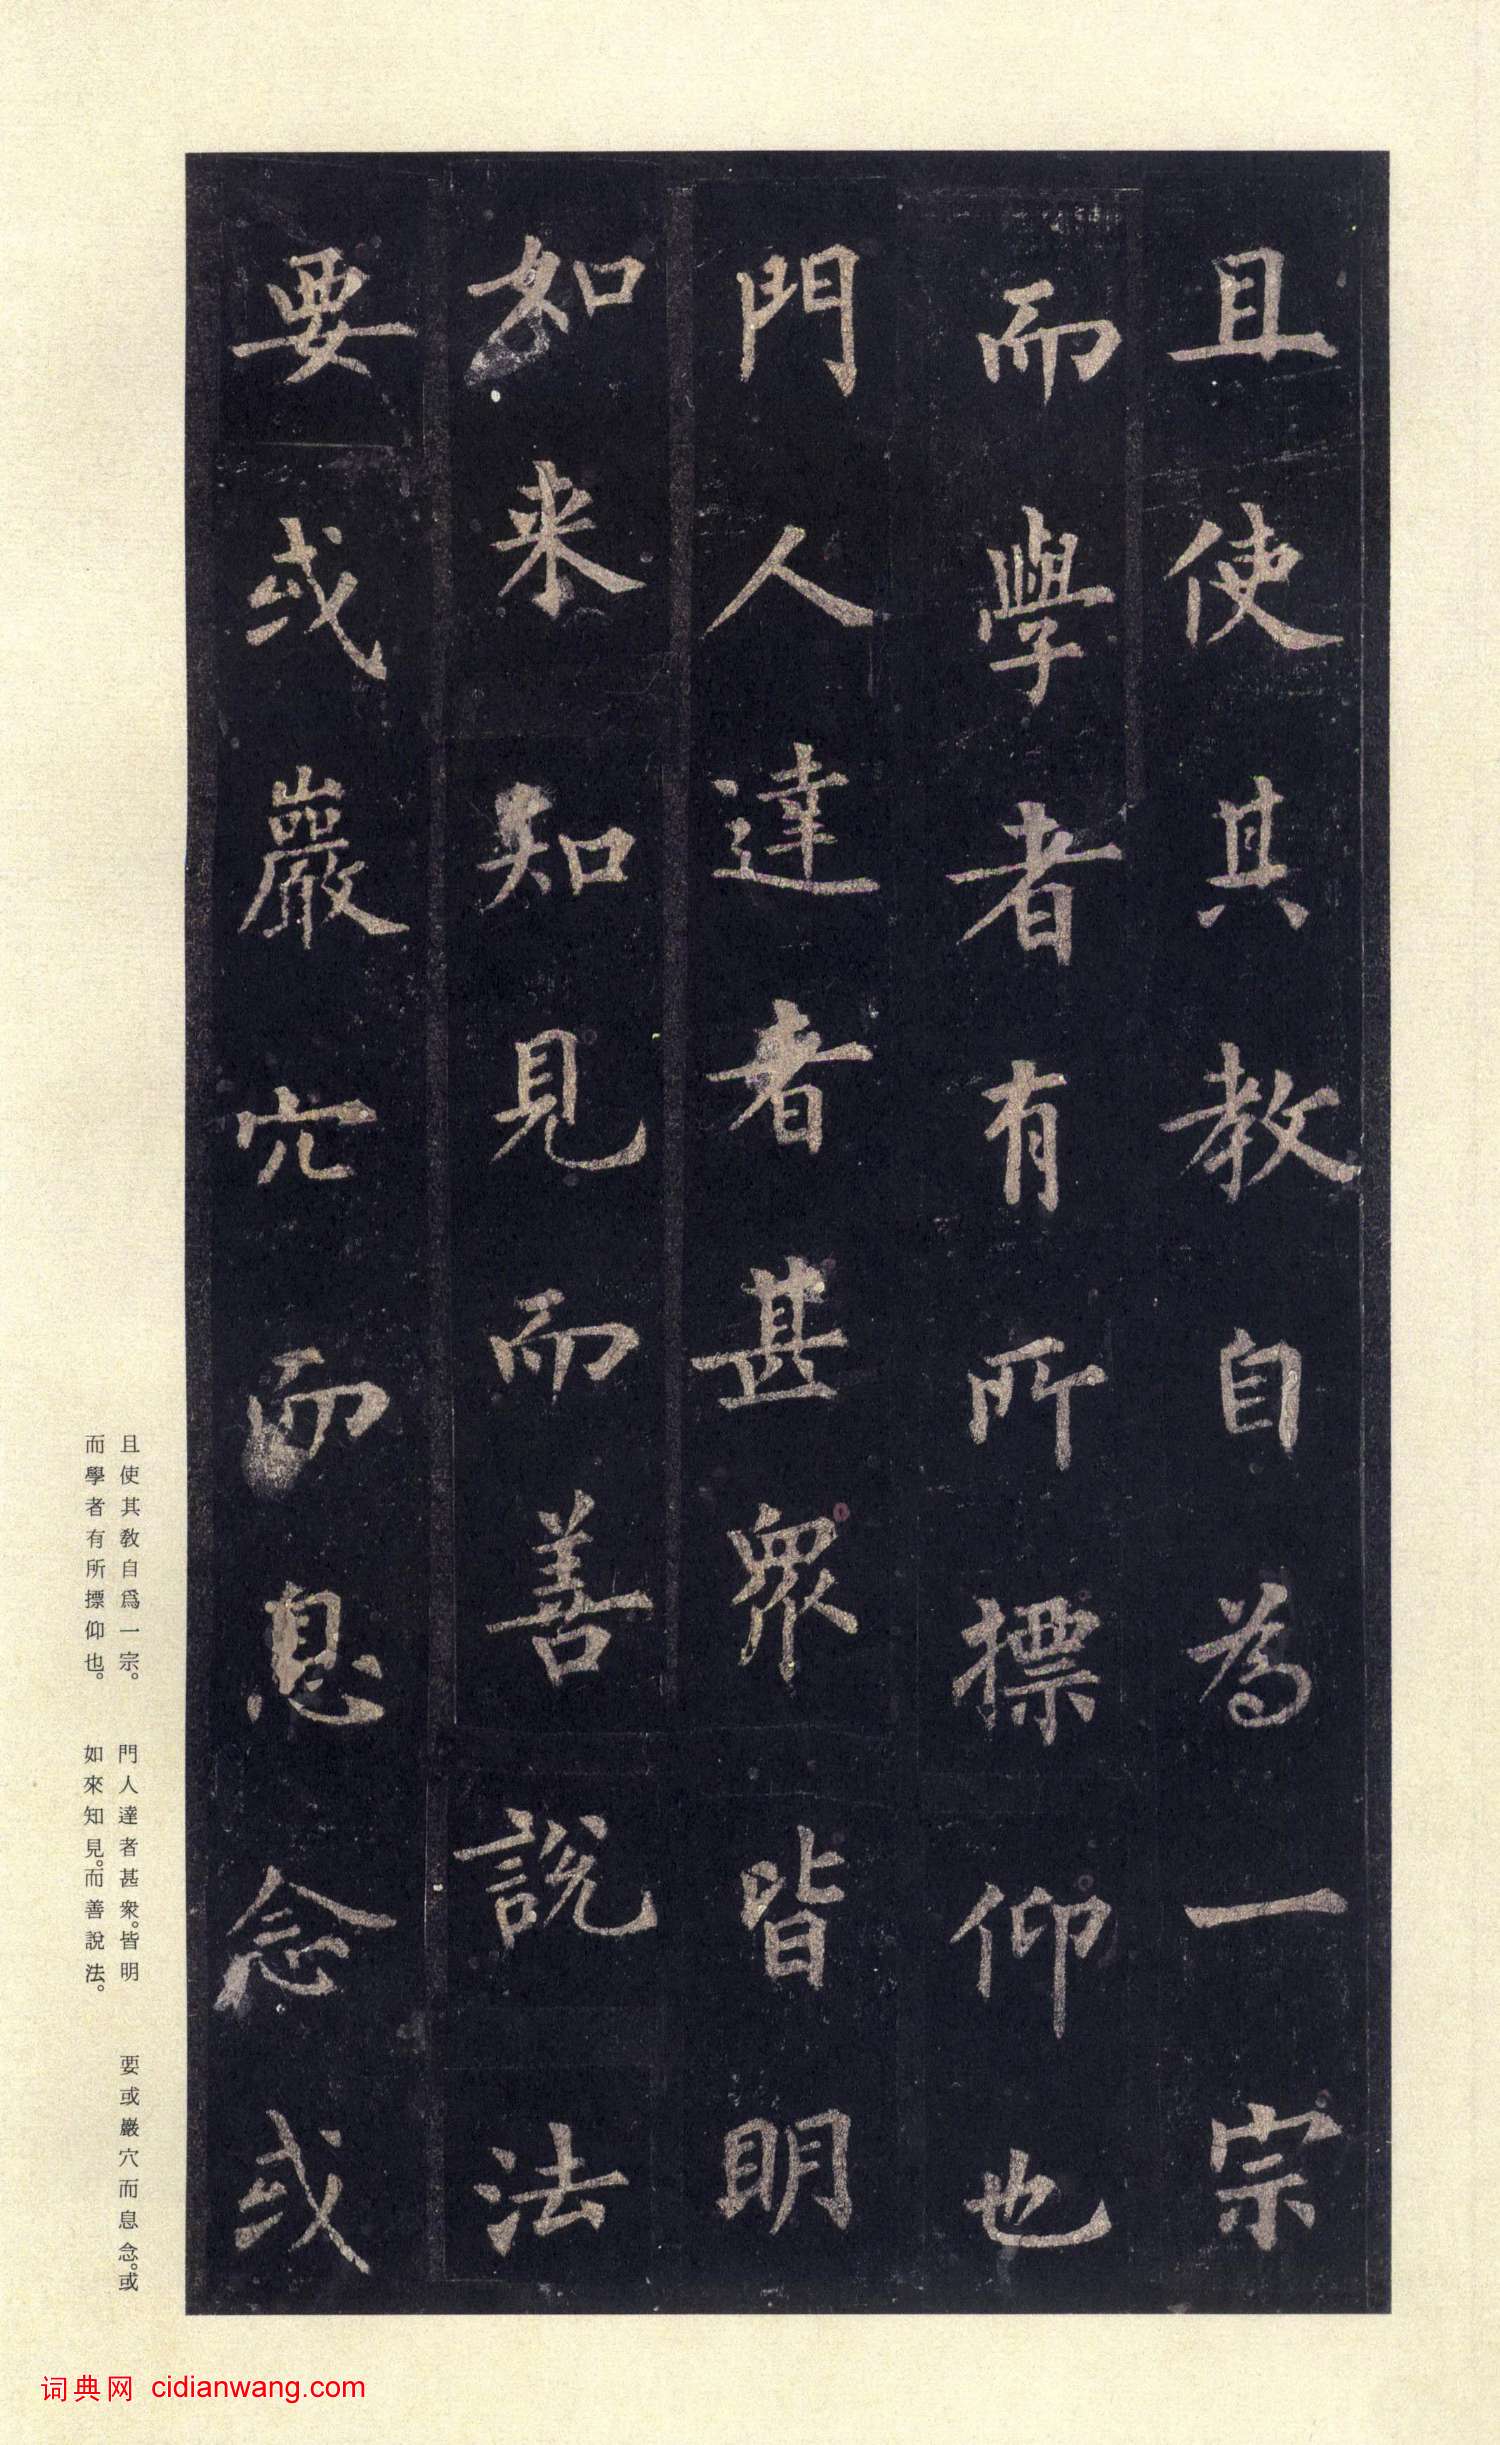 且使其教自為一宗
而學者有所摽仰也
門人達者甚衆皆明
如来知見而善說法
要或巖穴而息念或
且使其教自爲一宗。
而學者有所摽仰也。
門人達者甚衆。皆明
如來知見。而善說法。
要或巖穴而息念。或
词典网 cidianwang.com